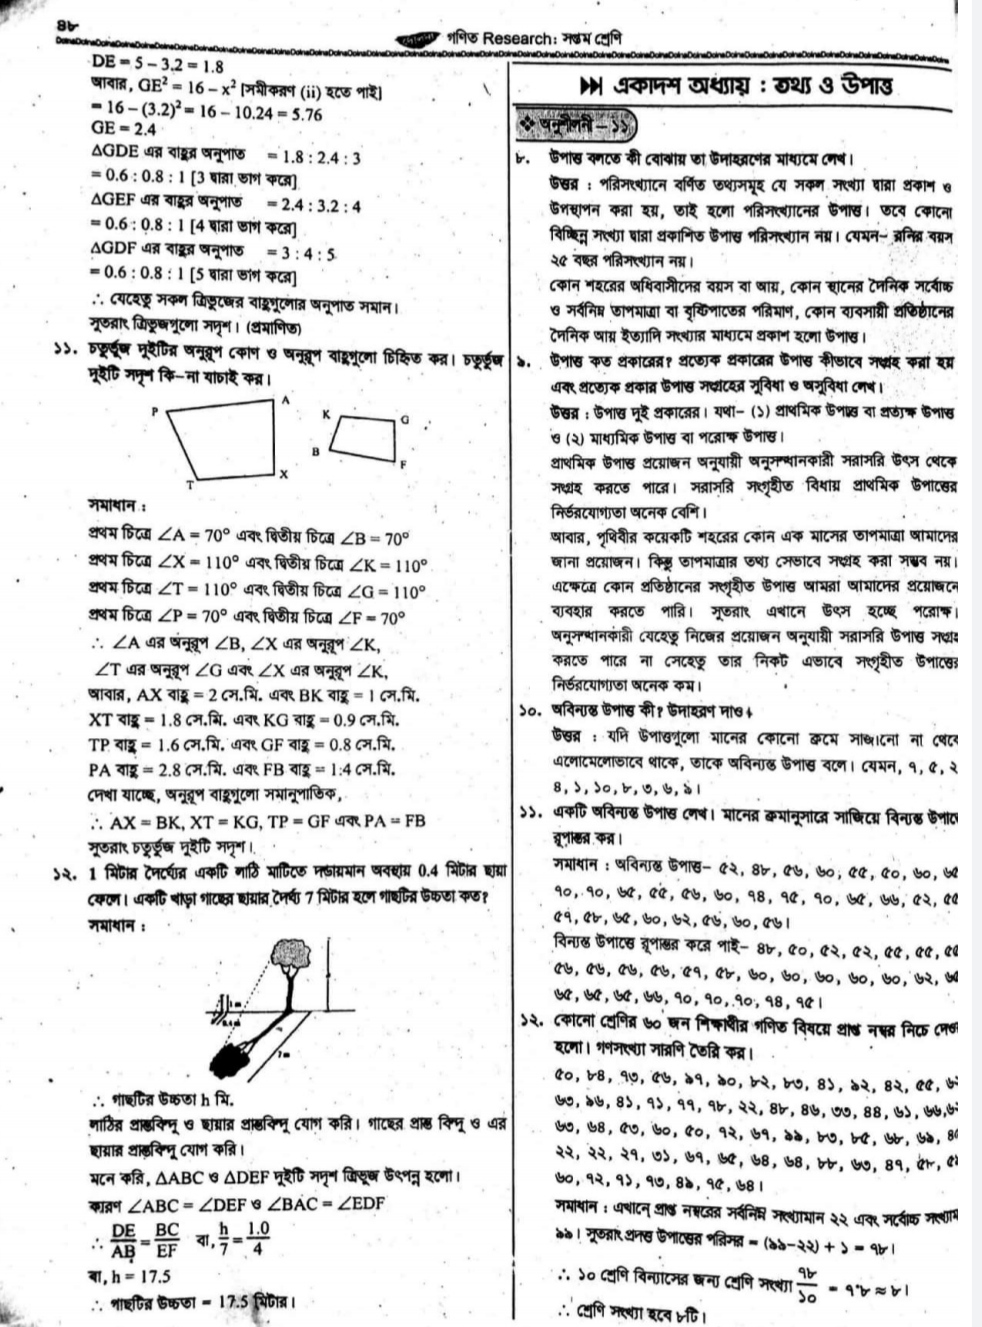 ৪৮
গণিত Research: সপ্তম শ্রেণি
DE = 5 – 3.2 = 1.8
আবার, GE² = 16 – x² [সমীকরণ (ii) হতে পাই]
= 16 – (3.2)² = 16 – 10.24 = 5.76
GE = 2.4
ΔGDE এর বাহুর অনুপাত = 1.8 : 2.4 : 3
= 0.6 : 0.8 : 1 [3 দ্বারা ভাগ করে]
ΔGEF এর বাহুর অনুপাত = 2.4 : 3.2 : 4
= 0.6 : 0.8 : 1 [4 দ্বারা ভাগ করে]
ΔGDF এর বাহুর অনুপাত = 3 : 4 : 5
= 0.6 : 0.8 : 1 [5 দ্বারা ভাগ করে]
∴ যেহেতু সকল ত্রিভুজের বাহুগুলোর অনুপাত সমান।
সুতরাং ত্রিভুজগুলো সদৃশ। (প্রমাণিত)
১১. চতুর্ভুজ দুইটির অনুরূপ কোণ ও অনুরূপ বাহুগুলো চিহ্নিত কর। চতুর্ভুজ
দুইটি সদৃশ কি-না যাচাই কর।
P A X T
K G B F
সমাধান :
প্রথম চিত্রে ∠A = 70° এবং দ্বিতীয় চিত্রে ∠B = 70°
প্রথম চিত্রে ∠X = 110° এবং দ্বিতীয় চিত্রে ∠K = 110°
প্রথম চিত্রে ∠T = 110° এবং দ্বিতীয় চিত্রে ∠G = 110°
প্রথম চিত্রে ∠P = 70° এবং দ্বিতীয় চিত্রে ∠F = 70°
∴ ∠A এর অনুরূপ ∠B, ∠X এর অনুরূপ ∠K,
∠T এর অনুরূপ ∠G এবং ∠X এর অনুরূপ ∠K,
আবার, AX বাহু = 2 সে.মি. এবং BK বাহু = 1 সে.মি.
XT বাহু = 1.8 সে.মি. এবং KG বাহু = 0.9 সে.মি.
TP বাহু = 1.6 সে.মি. এবং GF বাহু = 0.8 সে.মি.
PA বাহু = 2.8 সে.মি. এবং FB বাহু = 1.4 সে.মি.
দেখা যাচ্ছে, অনুরূপ বাহুগুলো সমানুপাতিক,
∴ AX = BK, XT = KG, TP = GF এবং PA = FB
সুতরাং চতুর্ভুজ দুইটি সদৃশ।
১২. 1 মিটার দৈর্ঘ্যের একটি লাঠি মাটিতে দণ্ডায়মান অবস্থায় 0.4 মিটার ছায়া
ফেলে। একটি খাড়া গাছের ছায়ার দৈর্ঘ্য 7 মিটার হলে গাছটির উচ্চতা কত?
সমাধান :
7 m
∴ গাছটির উচ্চতা h মি.
লাঠির প্রান্তবিন্দু ও ছায়ার প্রান্তবিন্দু যোগ করি। গাছের প্রান্ত বিন্দু ও এর
ছায়ার প্রান্তবিন্দু যোগ করি।
মনে করি, ΔABC ও ΔDEF দুইটি সদৃশ ত্রিভুজ উৎপন্ন হলো।
কারণ ∠ABC = ∠DEF ও ∠BAC = ∠EDF
∴ DE/AB = BC/EF বা, h/7 = 1.0/4
বা, h = 17.5
∴ গাছটির উচ্চতা = 17.5 মিটার।
একাদশ অধ্যায় : তথ্য ও উপাত্ত
অনুশীলনী – ১১
৮. উপাত্ত বলতে কী বোঝায় তা উদাহরণের মাধ্যমে লেখ।
উত্তর : পরিসংখ্যানে বর্ণিত তথ্যসমূহ যে সকল সংখ্যা দ্বারা প্রকাশ ও
উপস্থাপন করা হয়, তাই হলো পরিসংখ্যানের উপাত্ত। তবে কোনো
বিচ্ছিন্ন সংখ্যা দ্বারা প্রকাশিত উপাত্ত পরিসংখ্যান নয়। যেমন– রনির বয়স
২৫ বছর পরিসংখ্যান নয়।
কোন শহরের অধিবাসীদের বয়স বা আয়, কোন স্থানের দৈনিক সর্বোচ্চ
ও সর্বনিম্ন তাপমাত্রা বা বৃষ্টিপাতের পরিমাণ, কোন ব্যবসায়ী প্রতিষ্ঠানের
দৈনিক আয় ইত্যাদি সংখ্যার মাধ্যমে প্রকাশ হলো উপাত্ত।
৯. উপাত্ত কত প্রকারের? প্রত্যেক প্রকারের উপাত্ত কীভাবে সংগ্রহ করা হয়
এবং প্রত্যেক প্রকার উপাত্ত সংগ্রহের সুবিধা ও অসুবিধা লেখ।
উত্তর : উপাত্ত দুই প্রকারের। যথা– (১) প্রাথমিক উপাত্ত বা প্রত্যক্ষ উপাত্ত
ও (২) মাধ্যমিক উপাত্ত বা পরোক্ষ উপাত্ত।
প্রাথমিক উপাত্ত প্রয়োজন অনুযায়ী অনুসন্ধানকারী সরাসরি উৎস থেকে
সংগ্রহ করতে পারে। সরাসরি সংগৃহীত বিধায় প্রাথমিক উপাত্তের
নির্ভরযোগ্যতা অনেক বেশি।
আবার, পৃথিবীর কয়েকটি শহরের কোন এক মাসের তাপমাত্রা আমাদের
জানা প্রয়োজন। কিন্তু তাপমাত্রার তথ্য সেভাবে সংগ্রহ করা সম্ভব নয়।
এক্ষেত্রে কোন প্রতিষ্ঠানের সংগৃহীত উপাত্ত আমরা আমাদের প্রয়োজনে
ব্যবহার করতে পারি। সুতরাং এখানে উৎস হচ্ছে পরোক্ষ।
অনুসন্ধানকারী যেহেতু নিজের প্রয়োজন অনুযায়ী সরাসরি উপাত্ত সংগ্রহ
করতে পারে না সেহেতু তার নিকট এভাবে সংগৃহীত উপাত্তের
নির্ভরযোগ্যতা অনেক কম।
১০. অবিন্যস্ত উপাত্ত কী? উদাহরণ দাও।
উত্তর : যদি উপাত্তগুলো মানের কোনো ক্রমে সাজানো না থেকে
এলোমেলোভাবে থাকে, তাকে অবিন্যস্ত উপাত্ত বলে। যেমন, ৭, ৫, ২
৪, ১, ১০, ৮, ৩, ৬, ৯।
১১. একটি অবিন্যস্ত উপাত্ত লেখ। মানের ক্রমানুসারে সাজিয়ে বিন্যস্ত উপাত্তে
রূপান্তর কর।
সমাধান : অবিন্যস্ত উপাত্ত– ৫২, ৪৮, ৫৬, ৬০, ৫৫, ৫০, ৬০, ৬৫
৭০, ৭০, ৬৫, ৫৫, ৫৬, ৬০, ৭৪, ৭৫, ৭০, ৬৫, ৬৬, ৫২, ৫৫
৫৭, ৫৮, ৬৫, ৬০, ৬২, ৫৬, ৬০, ৫৬।
বিন্যস্ত উপাত্তে রূপান্তর করে পাই– ৪৮, ৫০, ৫২, ৫২, ৫৫, ৫৫, ৫৫
৫৬, ৫৬, ৫৬, ৫৬, ৫৭, ৫৮, ৬০, ৬০, ৬০, ৬০, ৬০, ৬২, ৬৫
৬৫, ৬৫, ৬৫, ৬৬, ৭০, ৭০, ৭০, ৭৪, ৭৫।
১২. কোনো শ্রেণির ৬০ জন শিক্ষার্থীর গণিত বিষয়ে প্রাপ্ত নম্বর নিচে দেওয়া
হলো। গণসংখ্যা সারণি তৈরি কর।
৫০, ৮৪, ৭৩, ৫৬, ৯৭, ৯০, ৮২, ৮৩, ৪১, ৯২, ৪২, ৫৫,
৬৩, ৯৬, ৪১, ৭১, ৭৭, ৭৮, ২২, ৪৮, ৪৬, ৩৩, ৪৪, ৬১, ৬৬,
৬৩, ৬৪, ৫৩, ৬০, ৫০, ৭২, ৬৭, ৯৯, ৮৩, ৮৫, ৬৮, ৬৯,
২২, ২২, ২৭, ৩১, ৬৭, ৬৫, ৬৪, ৬৪, ৮৮, ৬৩, ৪৭, ৫৮,
৬০, ৭২, ৭১, ৭৩, ৪৯, ৭৫, ৬৪।
সমাধান : এখানে প্রাপ্ত নম্বরের সর্বনিম্ন সংখ্যামান ২২ এবং সর্বোচ্চ সংখ্যামান
৯৯। সুতরাং প্রদত্ত উপাত্তের পরিসর = (৯৯–২২) + ১ = ৭৮।
∴ ১০ শ্রেণি বিন্যাসের জন্য শ্রেণি সংখ্যা ৭৮/১০ = ৭.৮ ≈ ৮।
∴ শ্রেণি সংখ্যা হবে ৮টি।